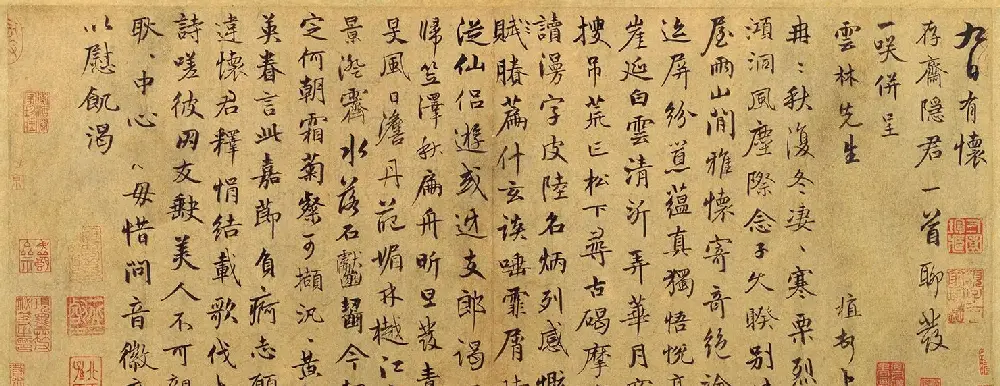 九日有懷
存齋隱君一首聊發
一咲併呈
雲林先生
冉、秋復冬淒、寒栗烈
澒洞風塵際念子久暌別
屋雨山間雅懷寄奇絕論
屏紛蘊真獨悟悅
崖延白雲清沂弄華月
搜吊荒丘松下尋古碣摩
讀漫字皮陸名炳列感慨
賦賸篇什玄談唾霏屑
從仙侶遊或迓支郎謁
歸笠澤秋扁舟昕旦發
旻風日澹丹范媚林樾江
景澄霽水落石齧今
定何朝霜菊粲可擷況、黃
英眷言此嘉節負痾志願
違懷君釋悁結載歌伐
詩嗟彼朋友缺美人不可
耿、中心、毋惜問音徽
以慰飢渴